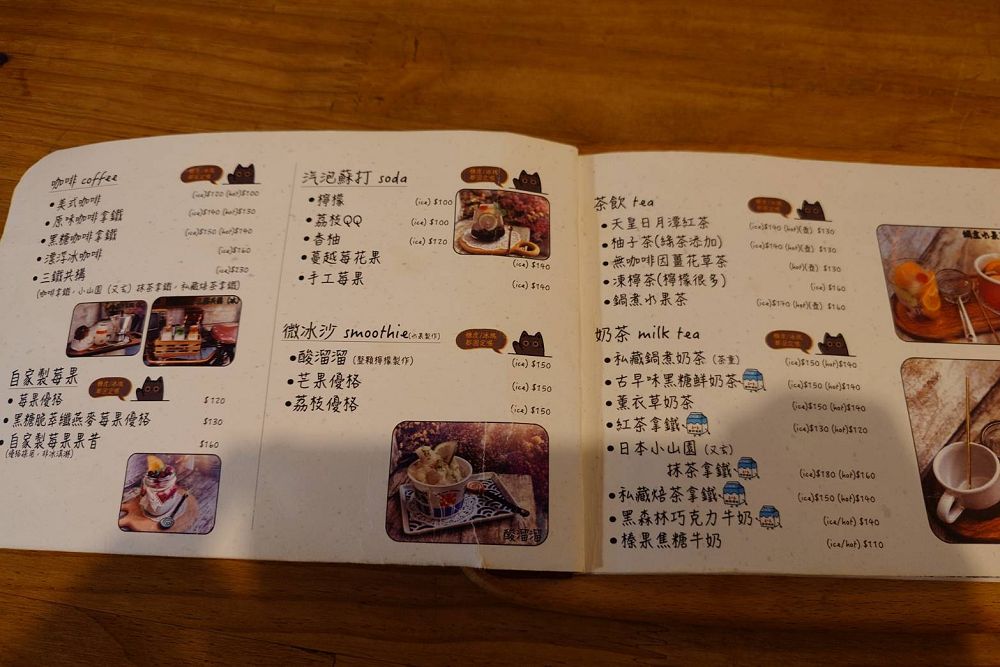 咖啡 coffee
糖度/冰塊
都固定喔
•美式咖啡 (ice)$120 (hot)$100
•原味咖啡拿鐵 (ice)$140 (hot)$130
•黑糖咖啡拿鐵 (ice)$150 (hot)$140
•濃淳冰咖啡 (ice)$160
•三鐵共構 (ice)$230
(咖啡拿鐵，小山園(又玄)抹茶拿鐵，私藏焙茶拿鐵)
自家製莓果
糖度/冰塊
都固定喔
•莓果優格 $120
•黑糖脆萃纖燕麥莓果優格 $130
•自家製莓果果昔 $160
汽泡蘇打 soda
糖度/冰塊
都固定喔
•檸檬 (ice) $100
•荔枝QQ (ice) $100
•香柚 (ice) $120
•蔓越莓花果 (ice) $140
•手工莓果 (ice) $140
微冰沙 smoothie(水果製作)
糖度/冰塊
都固定喔
•酸溜溜 (整顆檸檬製作) (ice) $150
•芒果優格 (ice) $150
•荔枝優格 (ice) $150
酸溜溜
茶飲 tea
糖度/冰塊
都固定喔
•天皇日月潭紅茶 (ice)$140 (hot)(壺) $130
•柚子茶(綠茶添加) (ice)$140 (hot)(壺) $130
•無咖啡因薑花草茶 (hot)(壺) $130
•凍檸茶(檸檬很多) (ice) $160
•鍋煮水果茶 (ice)$170 (hot)(壺) $160
奶茶 milk tea
糖度/冰塊
都固定喔
•私藏鍋煮奶茶 (茶重) (ice)$150 (hot)$140
•古早味黑糖鮮奶茶 (ice)$150 (hot)$140
•薰衣草奶茶 (ice)$150 (hot)$140
•紅茶拿鐵 (ice)$130 (hot)$120
•日本小山園 (又玄)
抹茶拿鐵 (ice)$180 (hot)$160
•私藏焙茶拿鐵 (ice)$150 (hot)$140
•黑森林巧克力牛奶 (ice/hot) $140
•榛果焦糖牛奶 (ice/hot) $110